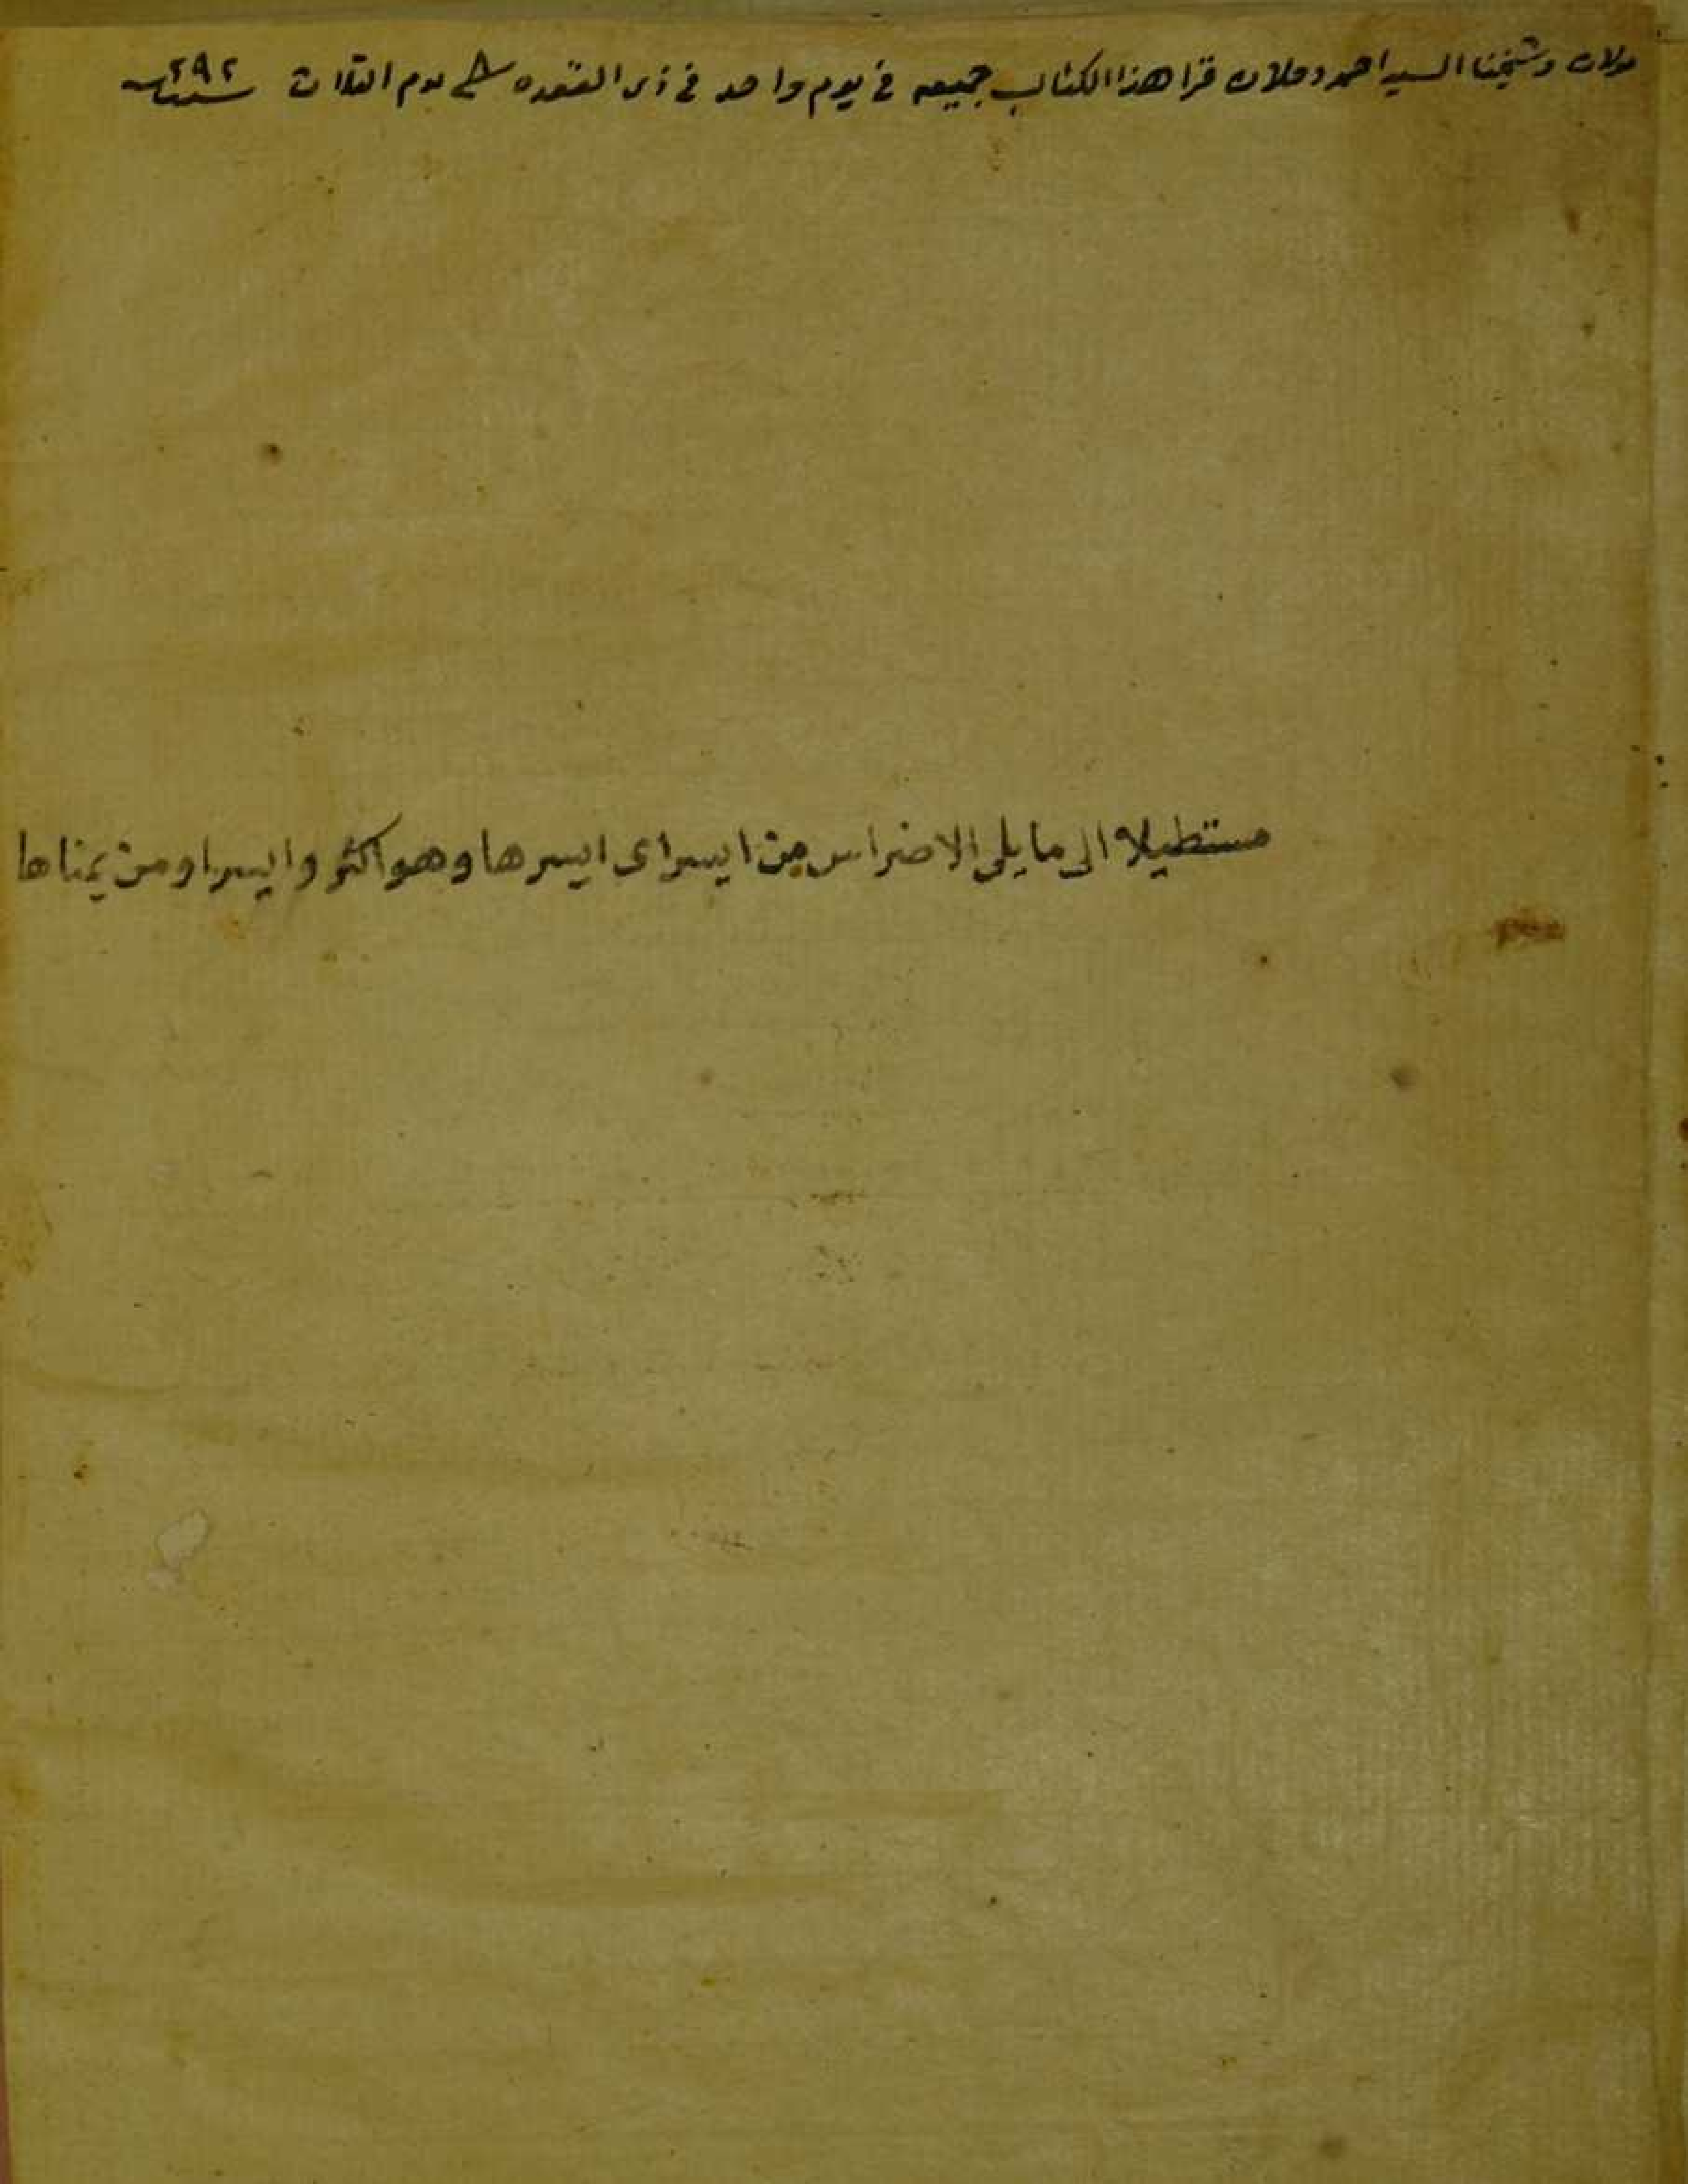 مولانا وشيخنا السيد احمد دحلان قرا هذا الكتاب جميعه في يوم واحد في ذى القعده يوم الثلاث سنة ٢٩٢
مستطيلا الى ما يلى الاضراس من ايسراى ايسرها وهو اكثر وايسر او من يمناها